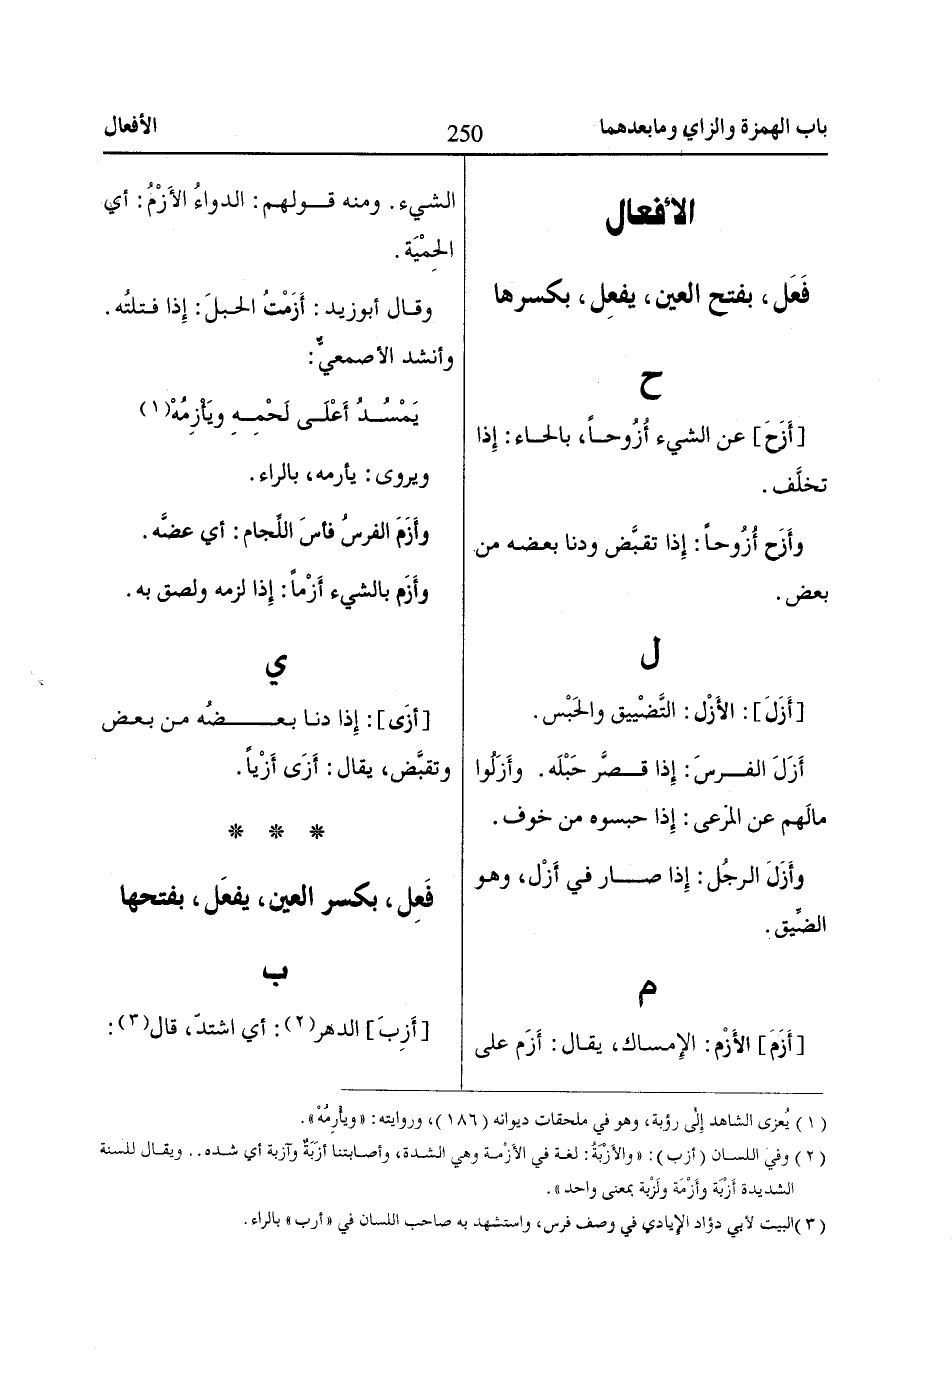 باب الهمزة والزاي ومابعدهما
250
الأفعال
الأفعال
فَعَل، بفتح العين، يفعِل، بكسرها
ح
[أَزَحَ] عن الشيء أُزُوحاً، بالحاء: إذا
تخلَّف.
وأَزَح أُزُوحاً: إذا تقبَّض ودنا بعضه من
بعض.
ل
[أَزَلَ]: الأَزْل: التَّضْييق والحَبْس.
أَزَلَ الفرسَ: إذا قصَّر حَبْلَه. وأَزَلُوا
مالَهم عن المَرْعى: إذا حبسوه من خوف.
وأَزَلَ الرجُل: إذا صار في أَزْل، وهو
الضِّيق.
م
[أَزَمَ] الأَزْم: الإمساك، يقال: أَزَم على
الشيء. ومنه قولهم: الدواءُ الأَزْمُ: أي
الحِمْيَة.
وقال أبوزيد: أَزَمْتُ الحبلَ: إذا فتلتُه.
وأنشد الأصمعيُّ:
يَمْسُدُ أَعْلَى لَحْمِهِ ويَأْزِمُهْ(١)
ويروى: يأرمه، بالراء.
وأَزَمَ الفرسُ فأسَ اللِّجام: أي عضَّه.
وأَزَم بالشيء أَزْماً: إذا لزمه ولصق به.
ي
[أزَى]: إذا دنا بعضُه من بعض
وتقبَّض، يقال: أزَى أَزْياً.
* * *
فَعِل، بكسر العين، يفعَل، بفتحها
ب
[أَزِبَ] الدهر(٢): أي اشتدّ، قال(٣):
(١) يُعزى الشاهد إلى رؤبة، وهو في ملحقات ديوانه (١٨٦)، وروايته: «ويأرِمُهْ».
(٢) وفي اللسان (أزب): «والأَزْبَةُ: لغة في الأزْمة وهي الشدة، وأصابتنا أزبَةٌ وآزبة أي شده.. ويقال للسنة
الشديدة أَزْبَة وأَزْمَة ولَزْبة بمعنى واحد».
(٣) البيت لأبي دؤاد الإيادي في وصف فرس، واستشهد به صاحب اللسان في «أرب» بالراء.